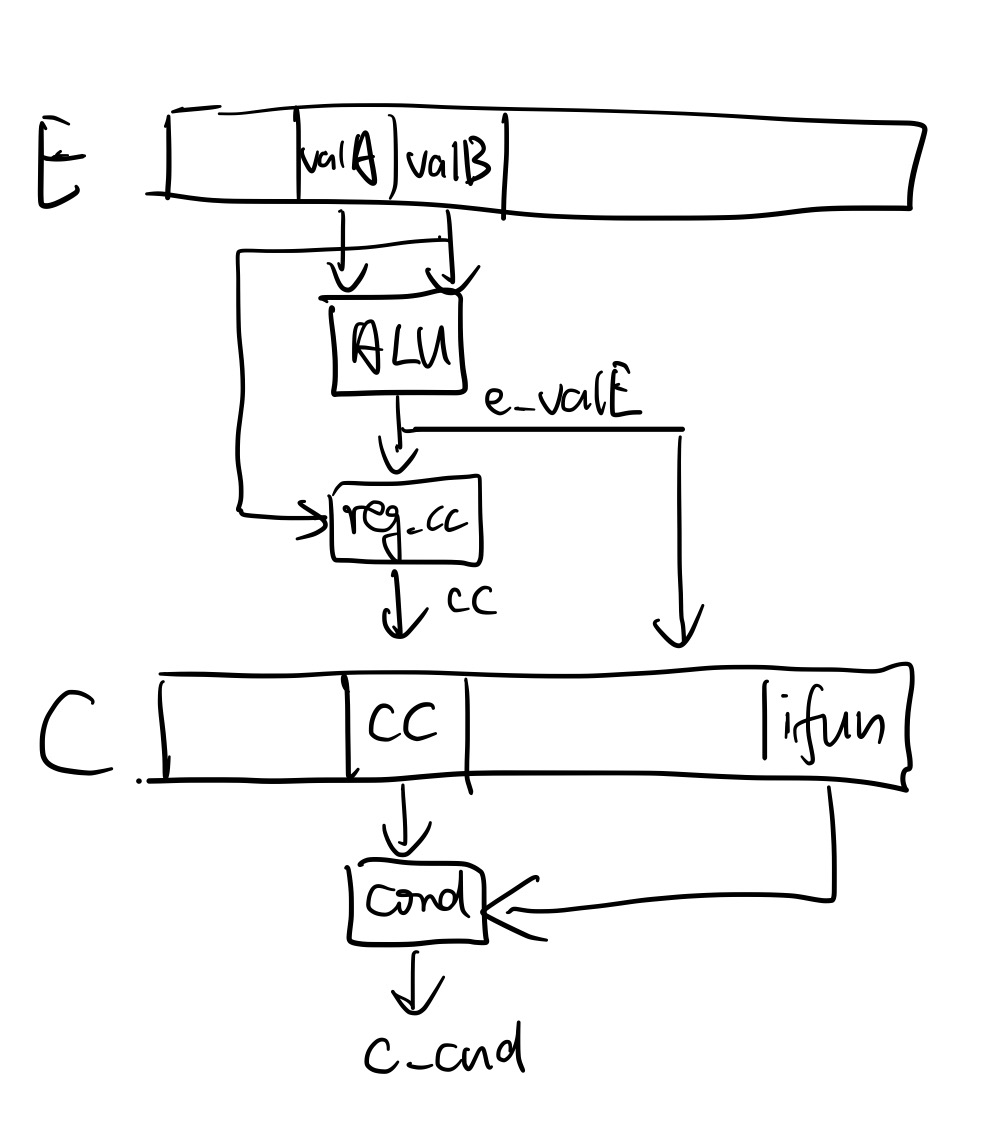 E
valA valB
ALU
e_valE
reg_cc
cc
C
CC ifun
cond
c_cnd